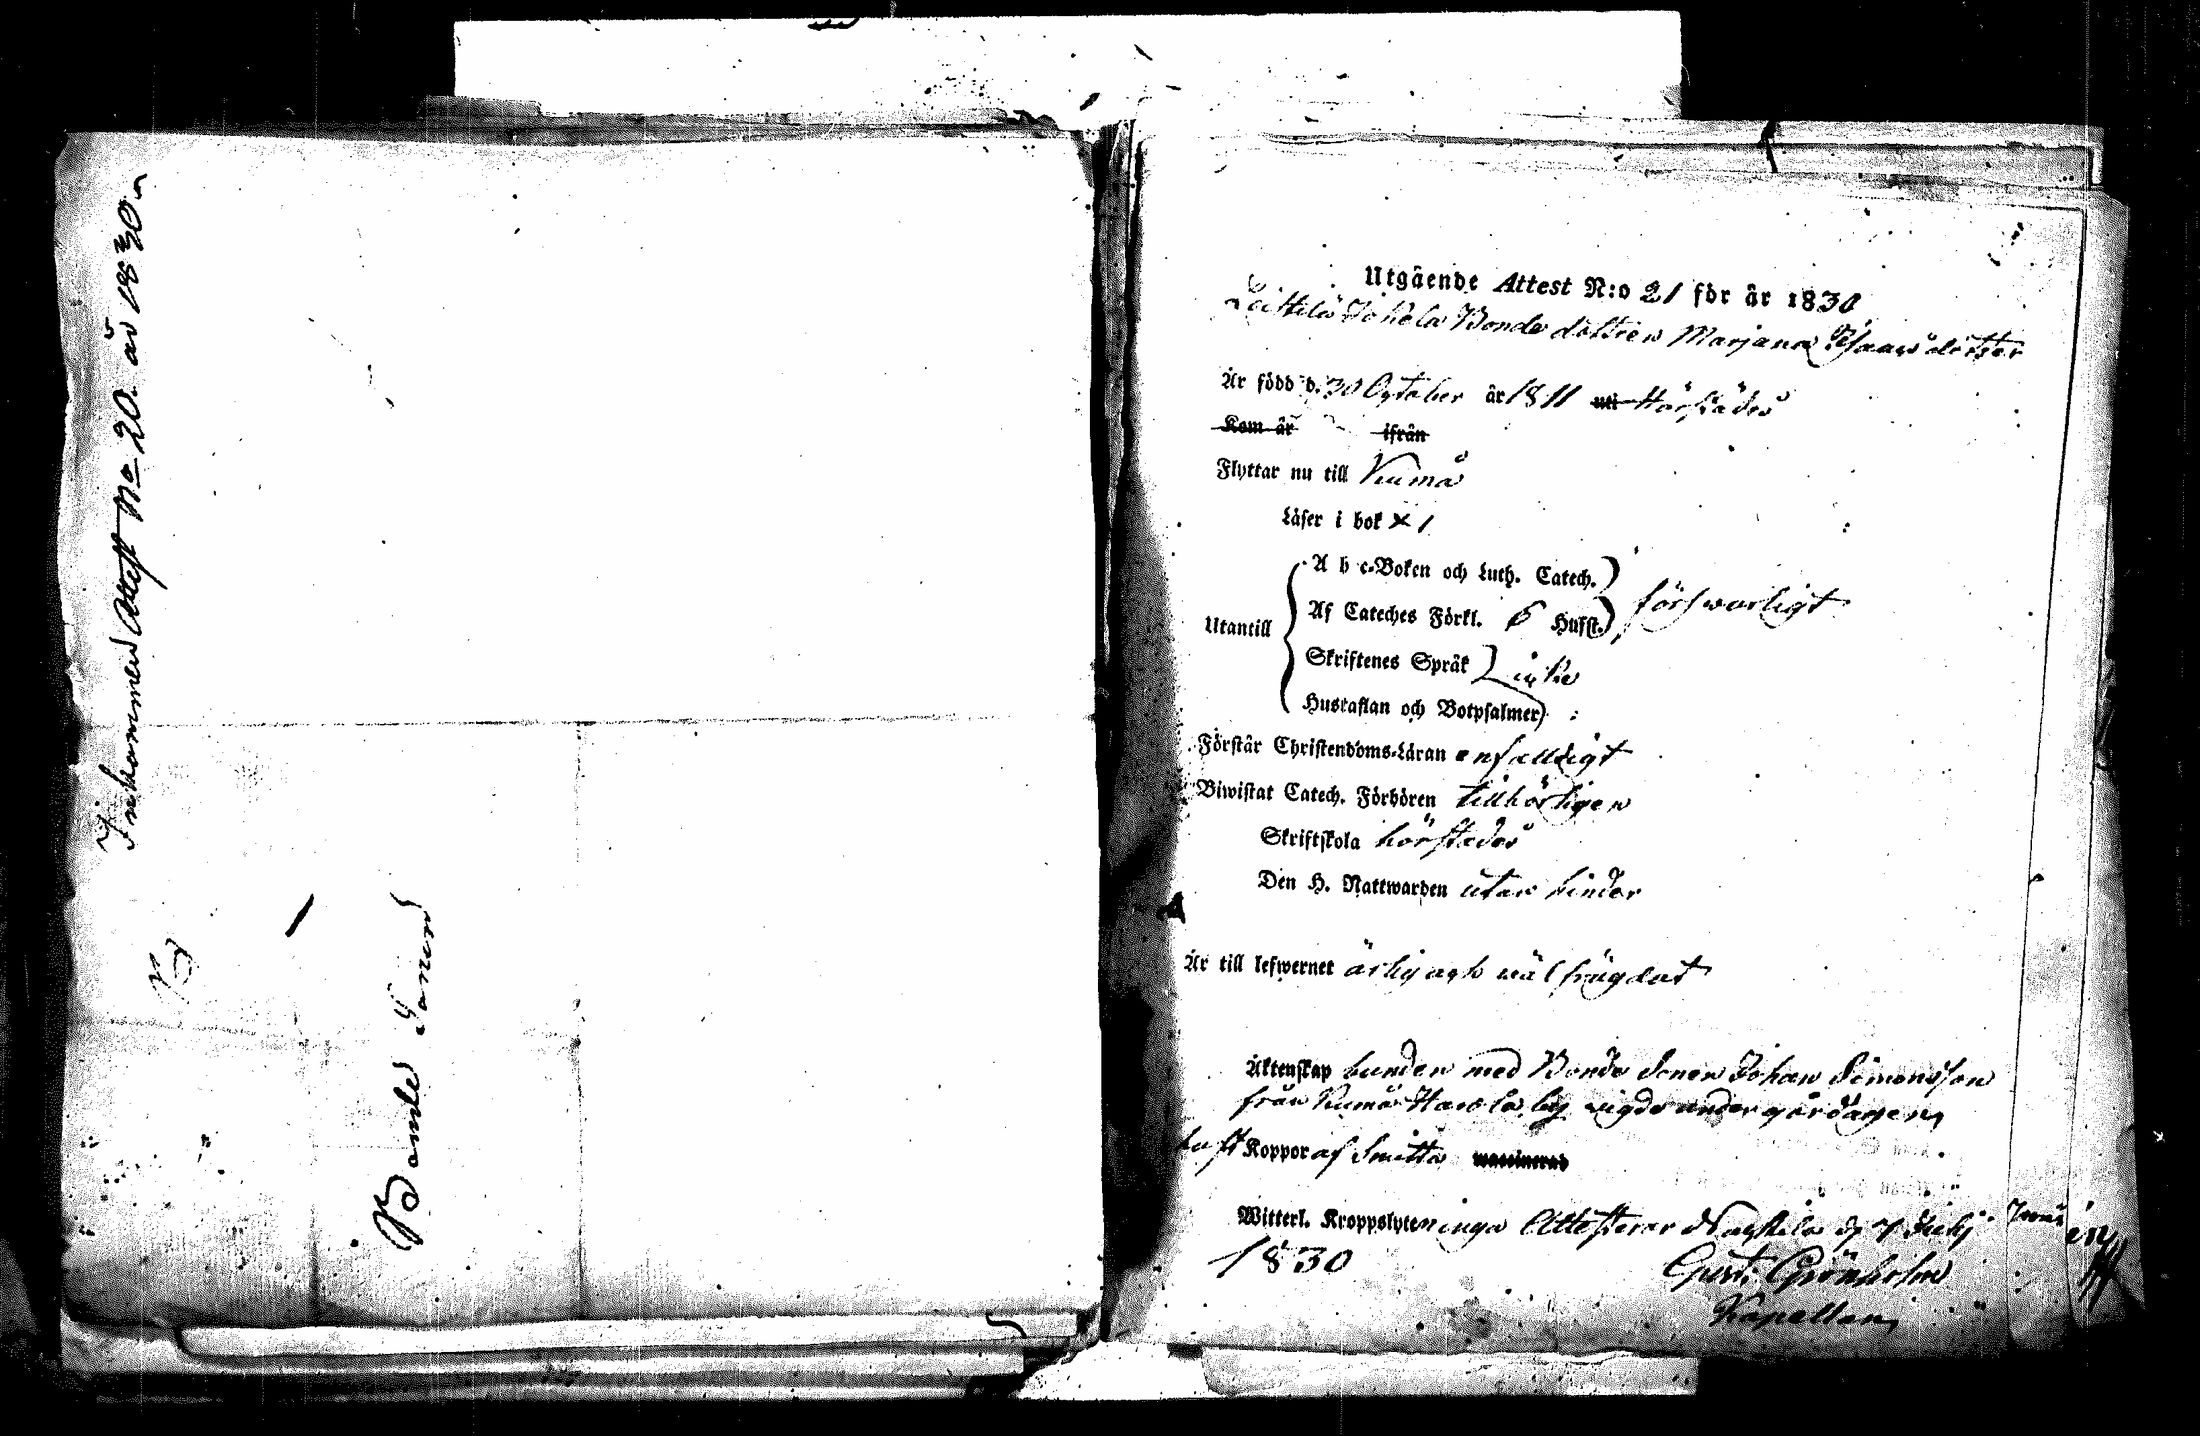 Inkommen Attest No 20. år 1830
Bonde Sonen
Utgående Attest N:o 21 för år 1830
Jokela Bonde dottren Marjana Isaacsdotter
Är född d. 30 October år 1811 uti Härstädes
Kom år ifrån
Flyttar nu till Kumå
Läser i bok × 1
A b c-Boken och Luth. Catech.
försvarligt
Utantill
Af Cateches Förkl. 6 Hufst.
Skriftenes Språk
icke
Hustaflan och Botpsalmer
Förstår Christendoms-Läran enfalldigt
Biwistat Catech. Förhören tillbörligen
Skriftskola härstädes
Den H. Nattwarden utan hinder
Är till lefwernet ärlig och wäl frägdat
Äktenskap bunden med Bonde Sonen Johan Simonsson
från Kumå by vigde under gårdagen
haft Koppor af Smitta waccinerad
Witterl. Kroppslyten inga Attesterar Nackila d. 7 Juny
1830
Gust. Grönholm
Kapellan